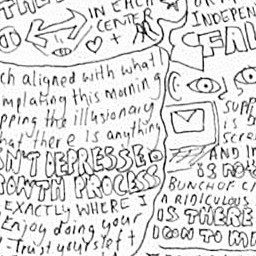 THE
IN EACH
CENTER
+
ch aligned with what I
mplating this morning
pping the illusionary
hat there is anything
N'T DEPRESSED
ROWTH PROCESS
EXACTLY WHERE I
Enjoy doing your
- Trust yourself +
OR
INDEPEN
FAL
SUPP
IS B
SCRE
AND IN
IS NO
BUNCH OF C
A RIDICULOUS
IS THERE
DOWN TO M